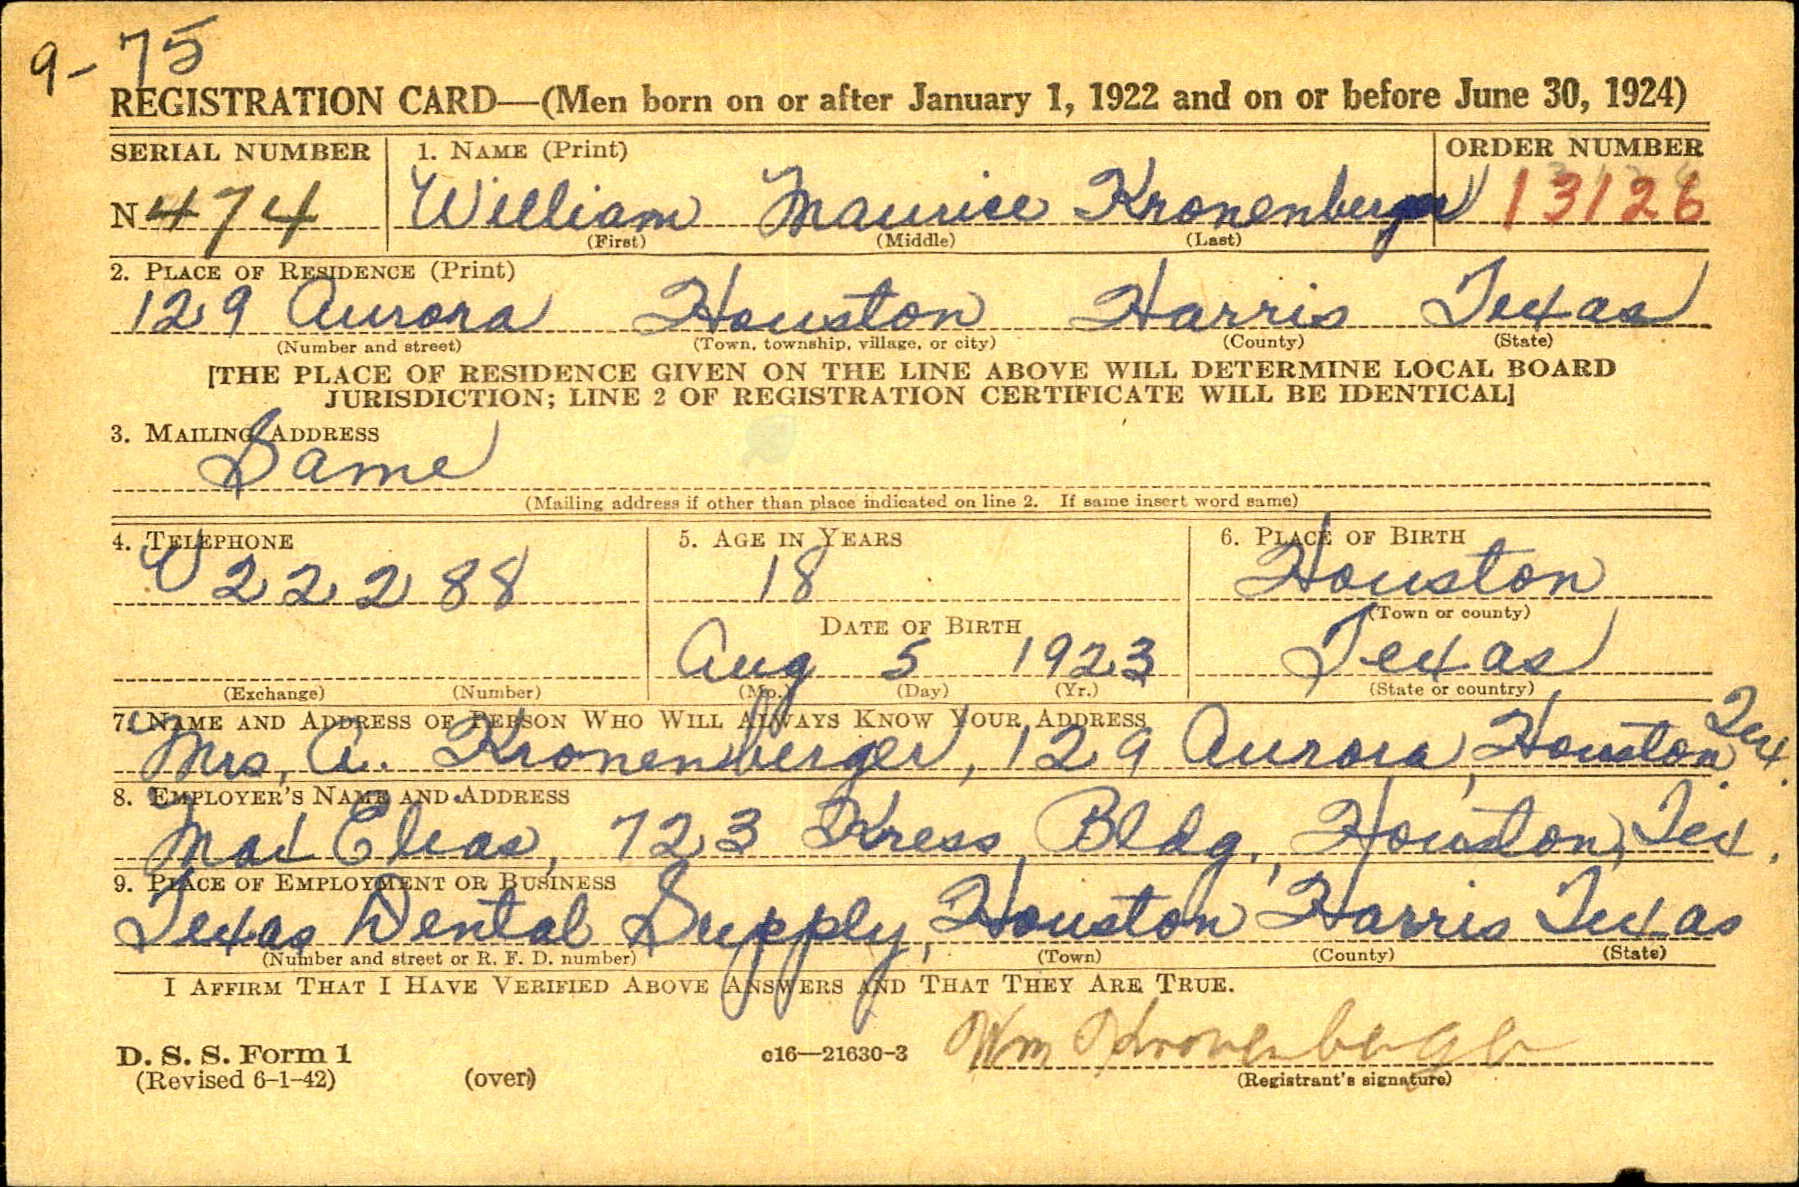 9-75
REGISTRATION CARD—(Men born on or after January 1, 1922 and on or before June 30, 1924)
SERIAL NUMBER 1. NAME (Print) ORDER NUMBER
N 474 William Maurice Kronenberger 13126
(First) (Middle) (Last)
2. PLACE OF RESIDENCE (Print)
129 Aurora Houston Harris Texas
(Number and street) (Town, township, village, or city) (County) (State)
[THE PLACE OF RESIDENCE GIVEN ON THE LINE ABOVE WILL DETERMINE LOCAL BOARD
JURISDICTION; LINE 2 OF REGISTRATION CERTIFICATE WILL BE IDENTICAL]
3. MAILING ADDRESS
Same
(Mailing address if other than place indicated on line 2. If same insert word same)
4. TELEPHONE 5. AGE IN YEARS 6. PLACE OF BIRTH
W 22288 18 Houston
(Town or county)
DATE OF BIRTH
Aug 5 1923 Texas
(Exchange) (Number) (Mo.) (Day) (Yr.) (State or country)
7. NAME AND ADDRESS OF PERSON WHO WILL ALWAYS KNOW YOUR ADDRESS
Mrs. A. Kronenberger, 129 Aurora, Houston, Tex.
8. EMPLOYER'S NAME AND ADDRESS
Max Elias, 723 Kress Bldg., Houston, Tex.
9. PLACE OF EMPLOYMENT OR BUSINESS
Texas Dental Supply, Houston Harris Texas
(Number and street or R. F. D. number) (Town) (County) (State)
I AFFIRM THAT I HAVE VERIFIED ABOVE ANSWERS AND THAT THEY ARE TRUE.
D. S. S. Form 1
(Revised 6-1-42) (over) c16—21630-3 Wm Kronenberger
(Registrant's signature)